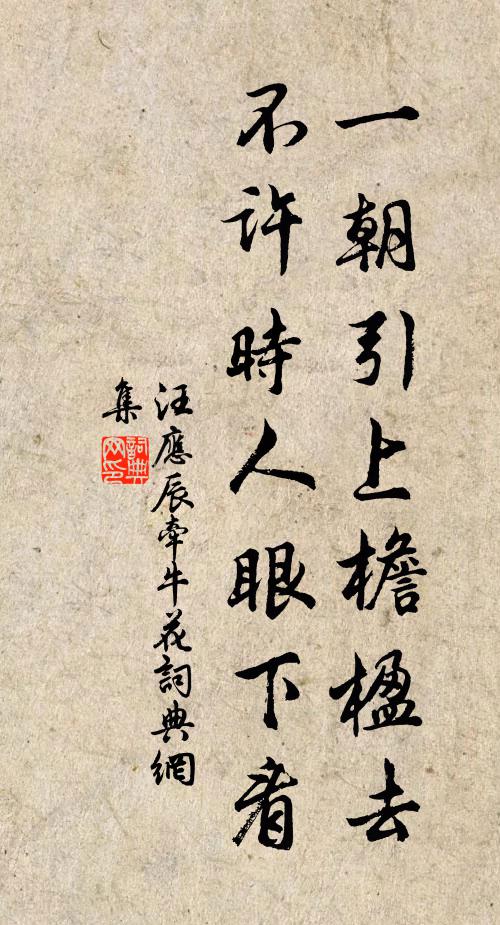 一朝引上檐楹去
不許時人眼下看
汪應辰牽牛花詞典網
集
詞典
网印